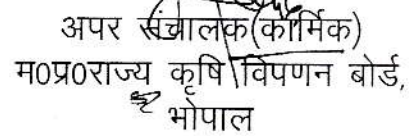 अपर संचालक(कार्मिक)
म0प्र0राज्य कृषि विपणन बोर्ड,
भोपाल